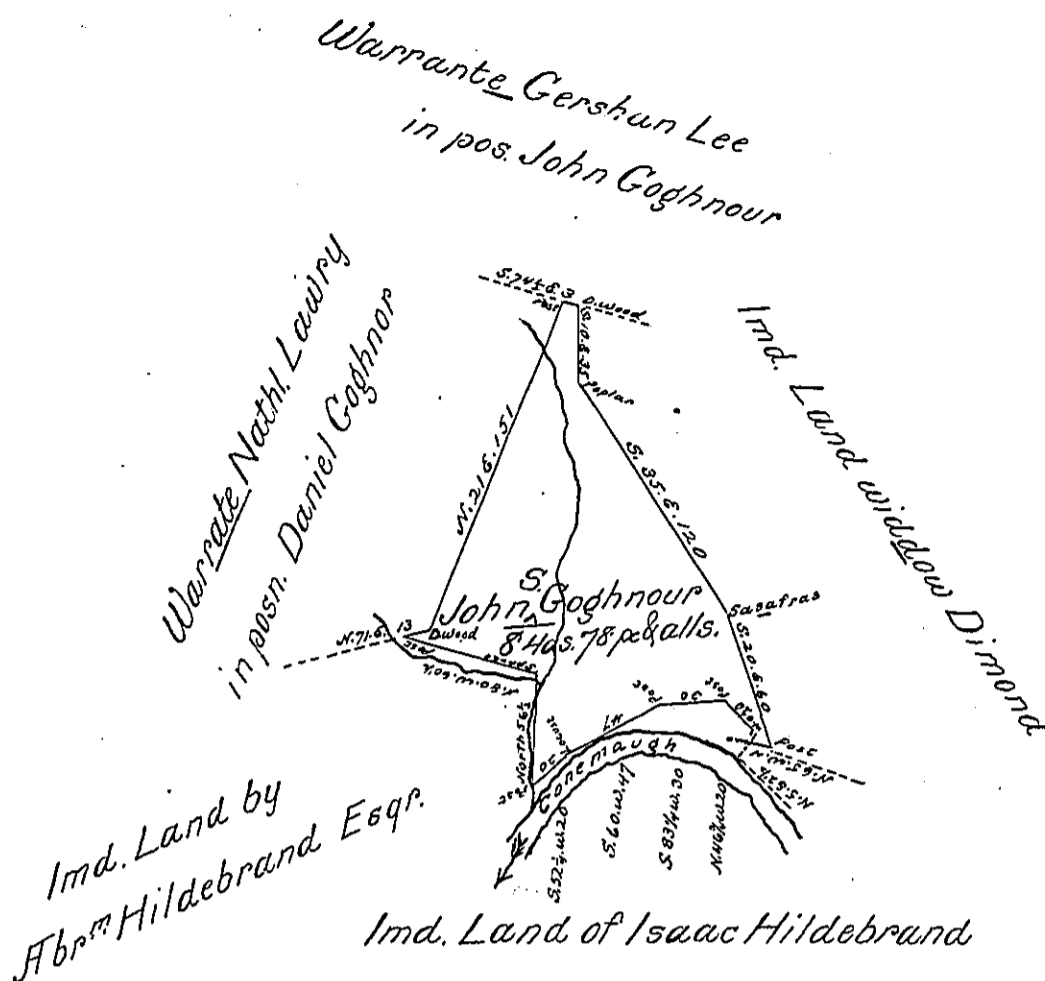 Warrante Gershun Lee
in pos. John Goghnour
Warrate Nathl. Lawry
in posn. Daniel Goghnor
Imd. Land widdow Dimond
S. 74½ E. 3 D.wood
Post
S. 10. E. 35
Poplar
N. 21 E. 151
S. 35. E. 120
S.
John Goghnour
84 as. 78 px & alls.
Sasafras
S. 20. E. 60
N. 71. E. 13
D.wood
Post
N. 80. W. 60½
North 56½
Post
20
Locust
47
Post
30
Post
Post
Conemaugh
S. 52½ W. 20
S. 60. W. 47
S. 83¼ W. 30
N. 46¾ W. 20
Imd. Land by
Abrm. Hildebrand Esqr.
Imd. Land of Isaac Hildebrand